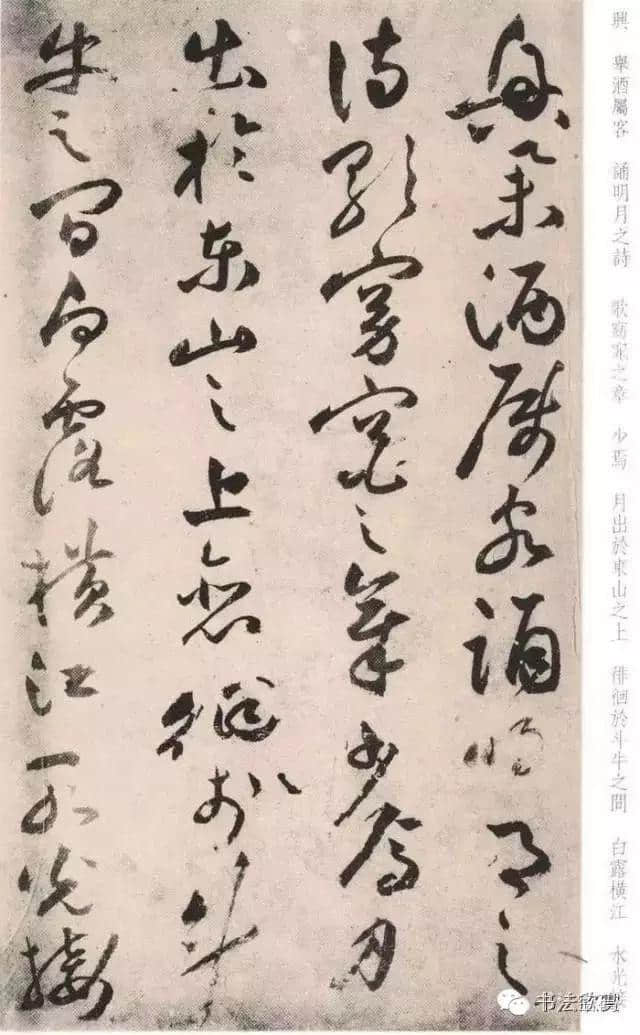 興 舉酒屬客 誦明月之詩 歌窈窕之章 少焉 月出於東山之上 徘徊於斗牛之間 白露橫江 水光
興舉酒屬客誦明月之
詩歌窈窕之章少焉月
出於東山之上徊於斗
牛之間白露橫江水光接
书法